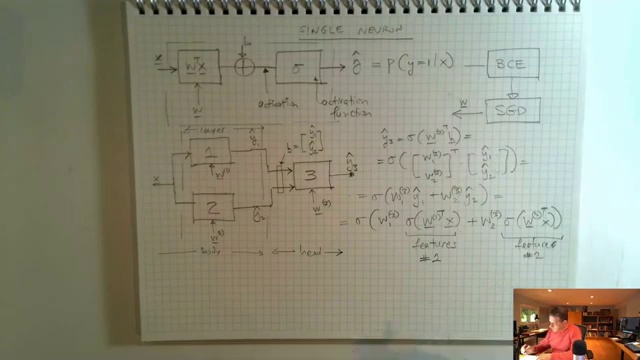 SINGLE NEURON
x wᵀx b σ ŷ = p(y=1/x) BCE
w activation activation function w SGD
layer ŷ₁ h = [ŷ₁ ŷ₂]
x 1 w⁽¹⁾ 3 ŷ₃ w⁽³⁾
2 ŷ₂ w⁽²⁾
body head
ŷ₃ = σ(w⁽³⁾ᵀ h) =
= σ([w₁⁽³⁾ w₂⁽³⁾]ᵀ [ŷ₁ ŷ₂]) =
= σ(w₁⁽³⁾ ŷ₁ + w₂⁽³⁾ ŷ₂) =
= σ(w₁⁽³⁾ σ(w⁽¹⁾ᵀ x) + w₂⁽³⁾ σ(w⁽²⁾ᵀ x))
features features
#2 #2